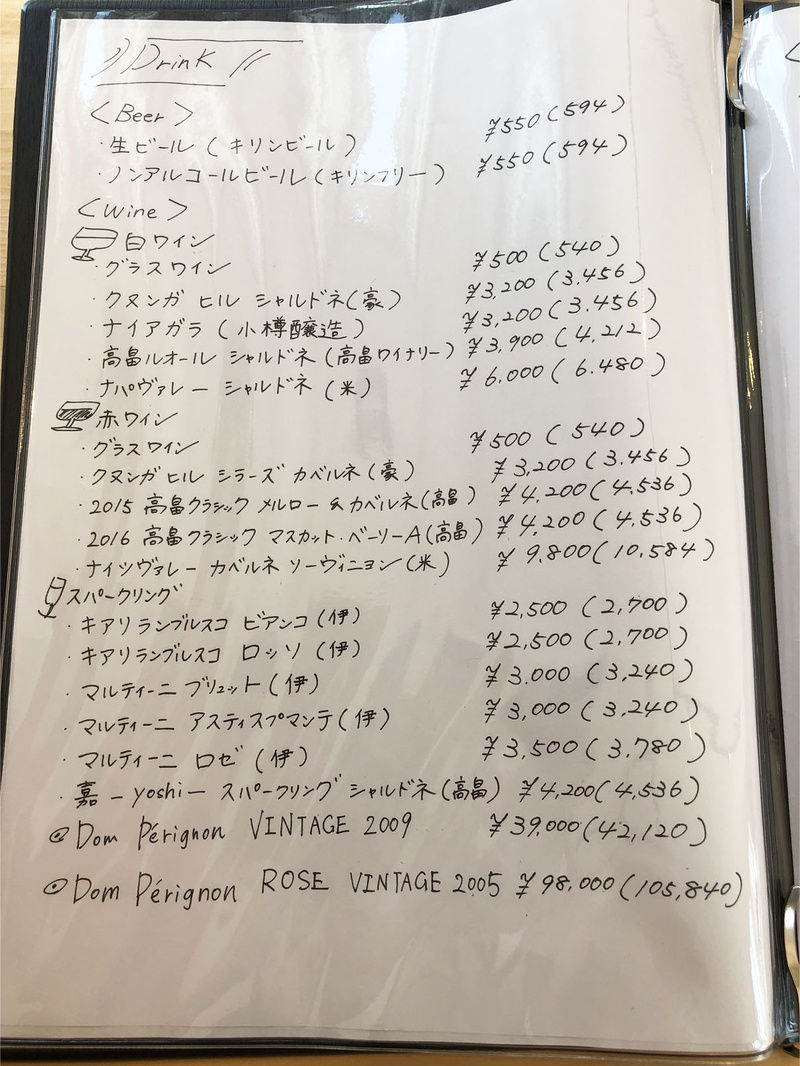 Drink
<Beer>
・生ビール (キリンビール) ¥550(594)
・ノンアルコールビール(キリンフリー) ¥550(594)
<Wine>
白ワイン
・グラスワイン ¥500(540)
・クヌンガ ヒル シャルドネ(豪) ¥3,200(3.456)
・ナイアガラ (小樽醸造) ¥3,200(3.456)
・高畠ルオール シャルドネ(高畠ワイナリー) ¥3,900(4,212)
・ナパヴァレー シャルドネ (米) ¥6.000(6.480)
赤ワイン
・グラスワイン ¥500(540)
・クヌンガヒル シラーズ カベルネ(豪) ¥3,200(3.456)
・2015 高畠クラシック メルロー&カベルネ(高畠) ¥4,200(4,536)
・2016 高畠クラシック マスカット・ベーリーA(高畠) ¥4,200(4,536)
・ナイツヴァレー カベルネ ソーヴィニヨン(米) ¥9.800(10,584)
スパークリング
・キアリランブルスコ ビアンコ(伊) ¥2,500(2,700)
・キアリランブルスコ ロッソ(伊) ¥2,500(2,700)
・マルティーニ ブリュット(伊) ¥3.000(3,240)
・マルティーニ アスティスプマンテ(伊) ¥3,000(3,240)
・マルティーニ ロゼ(伊) ¥3,500(3.780)
・嘉 -yoshi- スパークリング シャルドネ(高畠) ¥4,200(4,536)
Dom Pérignon VINTAGE 2009 ¥39,000(42,120)
Dom Pérignon ROSE VINTAGE 2005 ¥98,000(105,840)